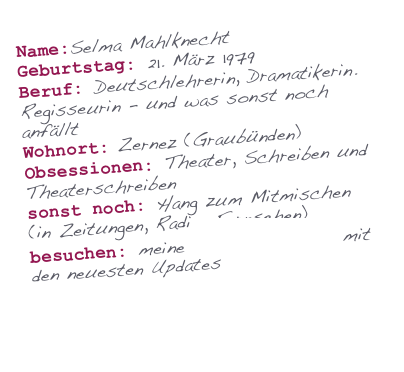 Name: Selma Mahlknecht
Geburtstag: 21. März 1979
Beruf: Deutschlehrerin, Dramatikerin.
Regisseurin - und was sonst noch
anfällt
Wohnort: Zernez (Graubünden)
Obsessionen: Theater, Schreiben und
Theaterschreiben
sonst noch: Hang zum Mitmischen
(in Zeitungen,
besuchen: meine mit
den neuesten Updates